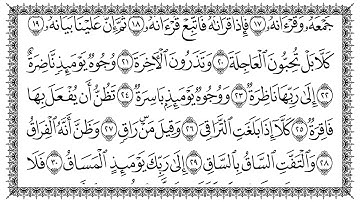 جَمْعَهُۥ وَقُرْءَانَهُۥ ١٧ فَإِذَا قَرَأْنَٰهُ فَٱتَّبِعْ قُرْءَانَهُۥ ١٨ ثُمَّ إِنَّ عَلَيْنَا بَيَانَهُۥ ١٩
كَلَّا بَلْ تُحِبُّونَ ٱلْعَاجِلَةَ ٢٠ وَتَذَرُونَ ٱلْءَاخِرَةَ ٢١ وُجُوهٌ يَوْمَئِذٍ نَّاضِرَةٌ
٢٢ إِلَىٰ رَبِّهَا نَاظِرَةٌ ٢٣ وَوُجُوهٌ يَوْمَئِذٍۭ بَاسِرَةٌ ٢٤ تَظُنُّ أَن يُفْعَلَ بِهَا
فَاقِرَةٌ ٢٥ كَلَّآ إِذَا بَلَغَتِ ٱلتَّرَاقِىَ ٢٦ وَقِيلَ مَنْ رَاقٍ ٢٧ وَظَنَّ أَنَّهُ ٱلْفِرَاقُ
٢٨ وَٱلْتَفَّتِ ٱلسَّاقُ بِٱلسَّاقِ ٢٩ إِلَىٰ رَبِّكَ يَوْمَئِذٍ ٱلْمَسَاقُ ٣٠ فَلَا